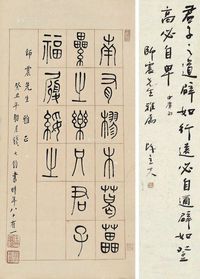 君子之道辟如行遠必自邇辟如登
高必自卑
師震先生雅屬
陳立夫
南有樛木葛藟
纍之樂只君子
福履綏之
師震先生雅正